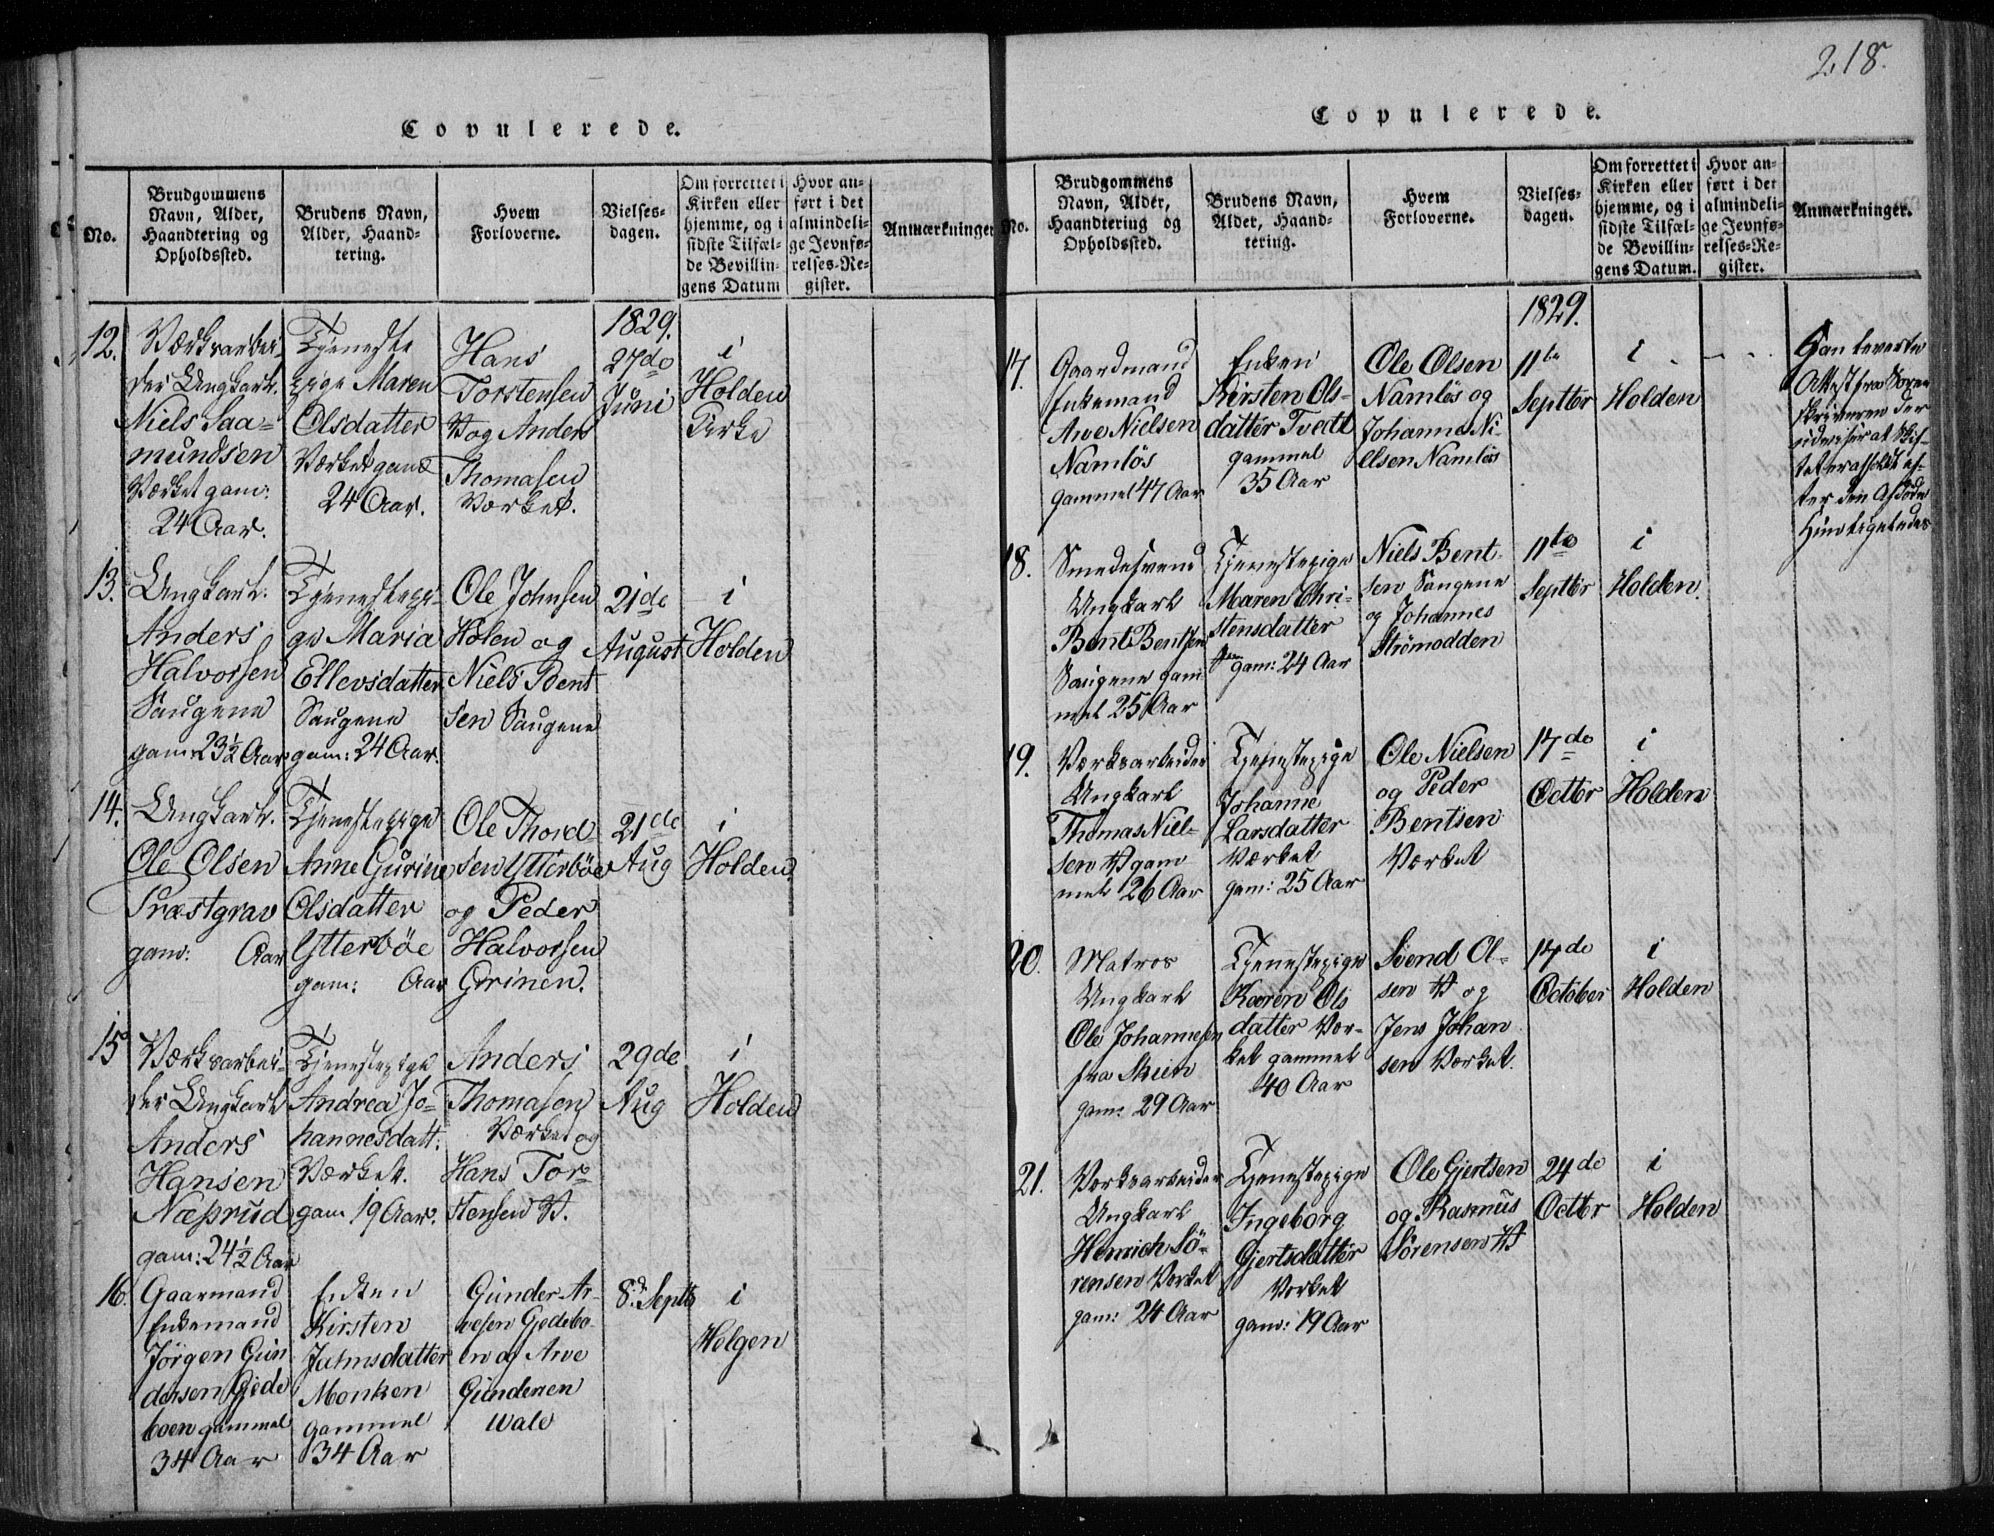 218.
Copulerede.
No.
Brudgommens
Navn, Alder,
Haandtering og
Opholdssted.
Brudens Navn,
Alder, Haand-
tering.
Hvem
Forloverne.
Vielses-
dagen.
Om forrettet i
Kirken eller
hjemme, og i
sidste Tilfæl-
de Bevillin-
gens Datum
Hvor an-
ført i det
almindeli-
ge Jevnfø-
relses-Re-
gister.
Anmærkninger
1829.
12.
Værksarbei-
der Ungkarl.
Niels Saa-
mundsen
Værket gam:
24 Aar.
Tjeneste
pige Maren
Olsdatter
Værket gam:
24 Aar.
Hans
Torstensen
V og Anders
Thomasen
Værket.
27de
Juni
i
Holden
Kirke
13.
Ungkarl.
Anders
Halvorsen
Saugene
gam: 23½ Aar
Tjenestepi-
ge Maria
Ellevsdatter
Saugene
gam: 24 Aar.
Ole Johnsen
Holen og
Niels Bent
sen Saugene
21de
August
i
Holden
14.
Ungkarl.
Ole Olsen
Præstgrav
gam: Aar
Tjenestepige
Anne Gurine
Olsdatter
Ytterböe
gam: Aar
Ole Thord
sen Ytterböe
og Peder
Halvorsen
Grinen.
21de
Aug
i
Holden.
15
Værksarbei-
der Ungkarl
Anders
Hansen
Næsrud
gam: 24½ Aar
Tjenestepige
Andrea Jo-
hannesdatt:
Værket.
gam 19 Aar.
Anders
Thomasen
Værket og
Hans Tor-
stensen V.
29de
Aug
i
Holden
16.
Gaarmand
Enkemand
Jörgen Gun
dersen Gjede
boen gammel
34 Aar
Enken
Kirsten
Jahnsdatter
Monken
gammel
34 Aar
Gunder Ar-
vesen Gjedebo-
en og Arve
Gundersen
Wale
8d Septb
i
Helgen
Copulerede.
No.
Brudgommens
Navn, Alder,
Haandtering og
Opholdssted.
Brudens Navn,
Alder, Haand-
tering.
Hvem
Forloverne.
Vielses-
dagen.
Om forrettet i
Kirken eller
hjemme, og i
sidste Tilfæl-
de Bevillin-
gens Datum.
Hvor an-
ført i det
almindeli-
ge Jevnfø-
relses-Re-
gister.
Anmærkninger.
1829.
17.
Gaardmand
Enkemand
Arve Nielsen
Namlös
gammel 47 Aar
Enken
Kirsten Ols-
datter Tvedt
gammel
35 Aar
Ole Olsen
Namlös og
Johanne Ni-
elsen Namlös
11te
Septbr
i
Holden
Han leverte
Attest fra Soren
skriveren der
udviser at Skif-
tet er afholdt ef-
ter den Afdöde
Hun ligeledes
18.
Smedesvend
Ungkarl
Bent Bentsen
Saugene gam
mel 25 Aar
Tjenestepige
Maren Chri-
stensdatter
gam: 24 Aar
Niels Bent-
sen Saugene
og Johannes
Strömodden
11te
Septbr
i
Holden.
19.
Værksarbeider
Ungkarl
Thomas Niel-
sen V gam
mel 26 Aar
Tjenestepige
Johanne
Larsdatter
Værket
gam: 25 Aar
Ole Nielsen
og Peder
Bentsen
Værket
17de
Octbr
i
Holden
20.
Matros
Ungkarl
Ole Johannesen
fra Skien
gam: 29 Aar
Tjenestepige
Karen Ols
datter Vær-
ket gammel
40 Aar
Svend Ol-
sen V og
Jens Johan
sen Værket.
17de
October
i
Holden
21.
Værksarbeider
Ungkarl
Henrich Sö-
rensen Værket
gam: 24 Aar
Tjenestepige
Ingeborg
Gjertsdatter
Værket
gam: 19 Aar
Ole Gjertsen
og Rasmus
Sörensen V
24de
Octbr
i
Holden